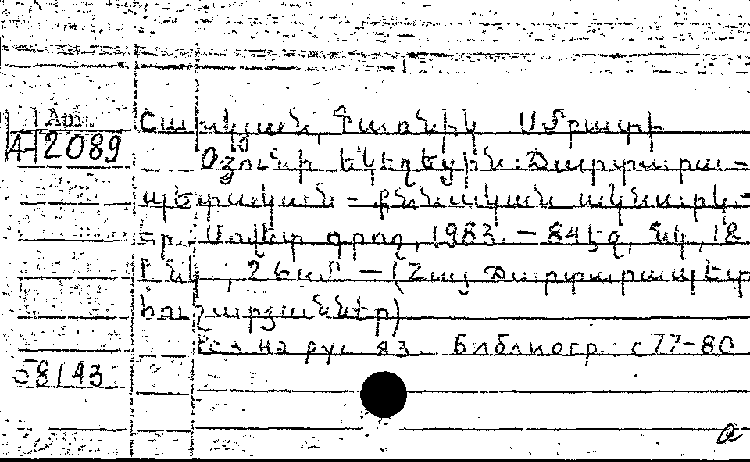 Арм.
A-2089
Շախկյան, Գառնիկ Սմբատի
Օձունի եկեղեցին: Ճարտարա-
պետական - քննական ակնարկ.-
Եր., Սովետ. գրող, 1983. - 84 էջ, նկ., 18
լ. նկ.; 26 սմ - (Հայ ճարտարապետ.
հուշարձաններ)
Рез. на рус. яз. Библиогр.: с 77-80
58143
a